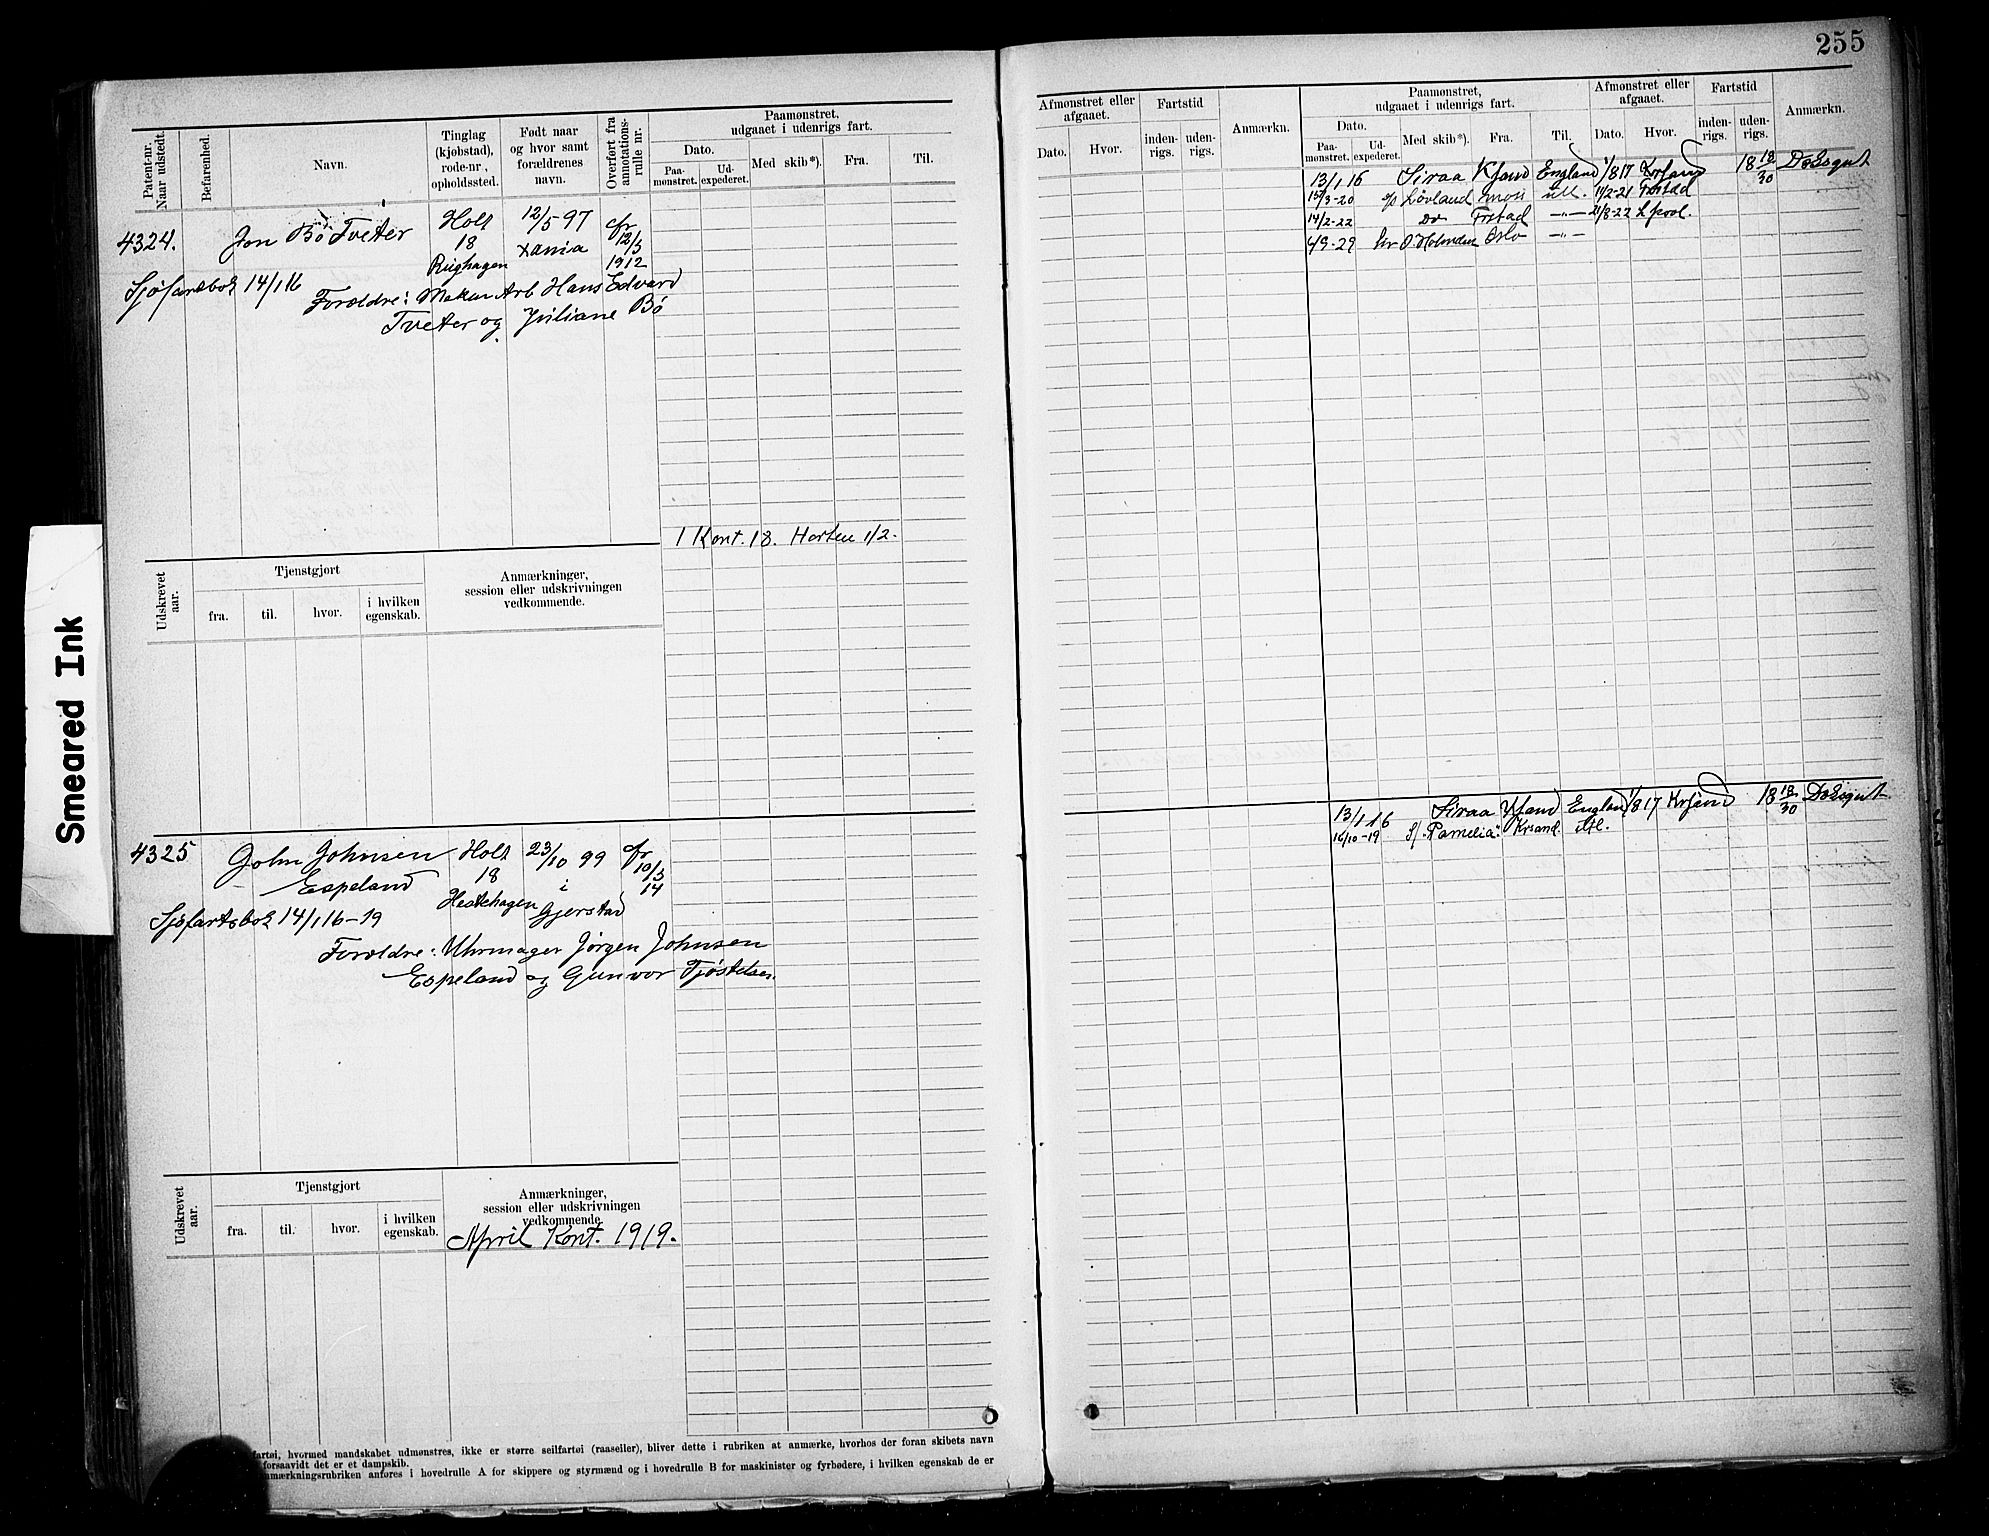 255
Patent-nr. Naar udstedt.
Befarenhed.
Navn.
Tinglag (kjøbstad), rode-nr., opholdssted.
Født naar og hvor samt forældrenes navn.
Overført fra annotations-rulle nr.
Paamønstret, udgaaet i udenrigs fart.
Dato.
Paa-mønstret.
Ud-expederet.
Med skib*).
Fra.
Til.
Afmønstret eller afgaaet.
Dato.
Hvor.
Fartstid
inden-rigs.
uden-rigs.
Anmærkn.
Paamønstret, udgaaet i udenrigs fart.
Dato.
Paa-mønstret.
Ud-expederet.
Med skib*).
Fra.
Til.
Afmønstret eller afgaaet.
Dato.
Hvor.
Fartstid
inden-rigs.
uden-rigs.
Anmærkn.
4324. Jon Bö Tveter Holt 12/5 97
18
12/5
1912
Sjøfartsbok 14/1 16
Forældre: Hans Edvard
Tveter og Juliane Bö
13/1 16 Siraa Kfsand England 1/8 17 18 18/30
15/3-20 Løvland 11/2-21 Frstad
14/2-22 Do Frstad —"— 21/8-22 Lpool.
4/9-29 Oslo —"—
1 Kont. 18. Horten 1/2.
Udskrevet aar.
Tjenstgjort
fra.
til.
hvor.
i hvilken egenskab.
Anmærkninger, session eller udskrivningen vedkommende.
Smeared Ink
4325 John Johnsen Holt 23/10 99
Espeland 18 i 10/3 14
Hestehagen Gjerstad
Sjøfartsbok 14/1 16-19
Forældre: Uhrmager Jörgen Johnsen
Espeland og Gunvor Tjöstelsen.
13/1 16 Siraa Kfsand England 1/8 17 18 18/30
16/10-19 S/. "Pamelia" Krsand. utl.
Udskrevet aar.
Tjenstgjort
fra.
til.
hvor.
i hvilken egenskab.
Anmærkninger, session eller udskrivningen vedkommende.
April Kont. 1919.
fartøi, hvormed mandskabet udmønstres, ikke er større seilfartøi (raaseiler), bliver dette i rubriken at anmærke, hvorhos der foran skibets navn
forsaavidt det er et dampskib.
mærkningsrubriken anføres i hovedrulle A for skippere og styrmænd og i hovedrulle B for maskinister og fyrbødere, i hvilken egenskab de er